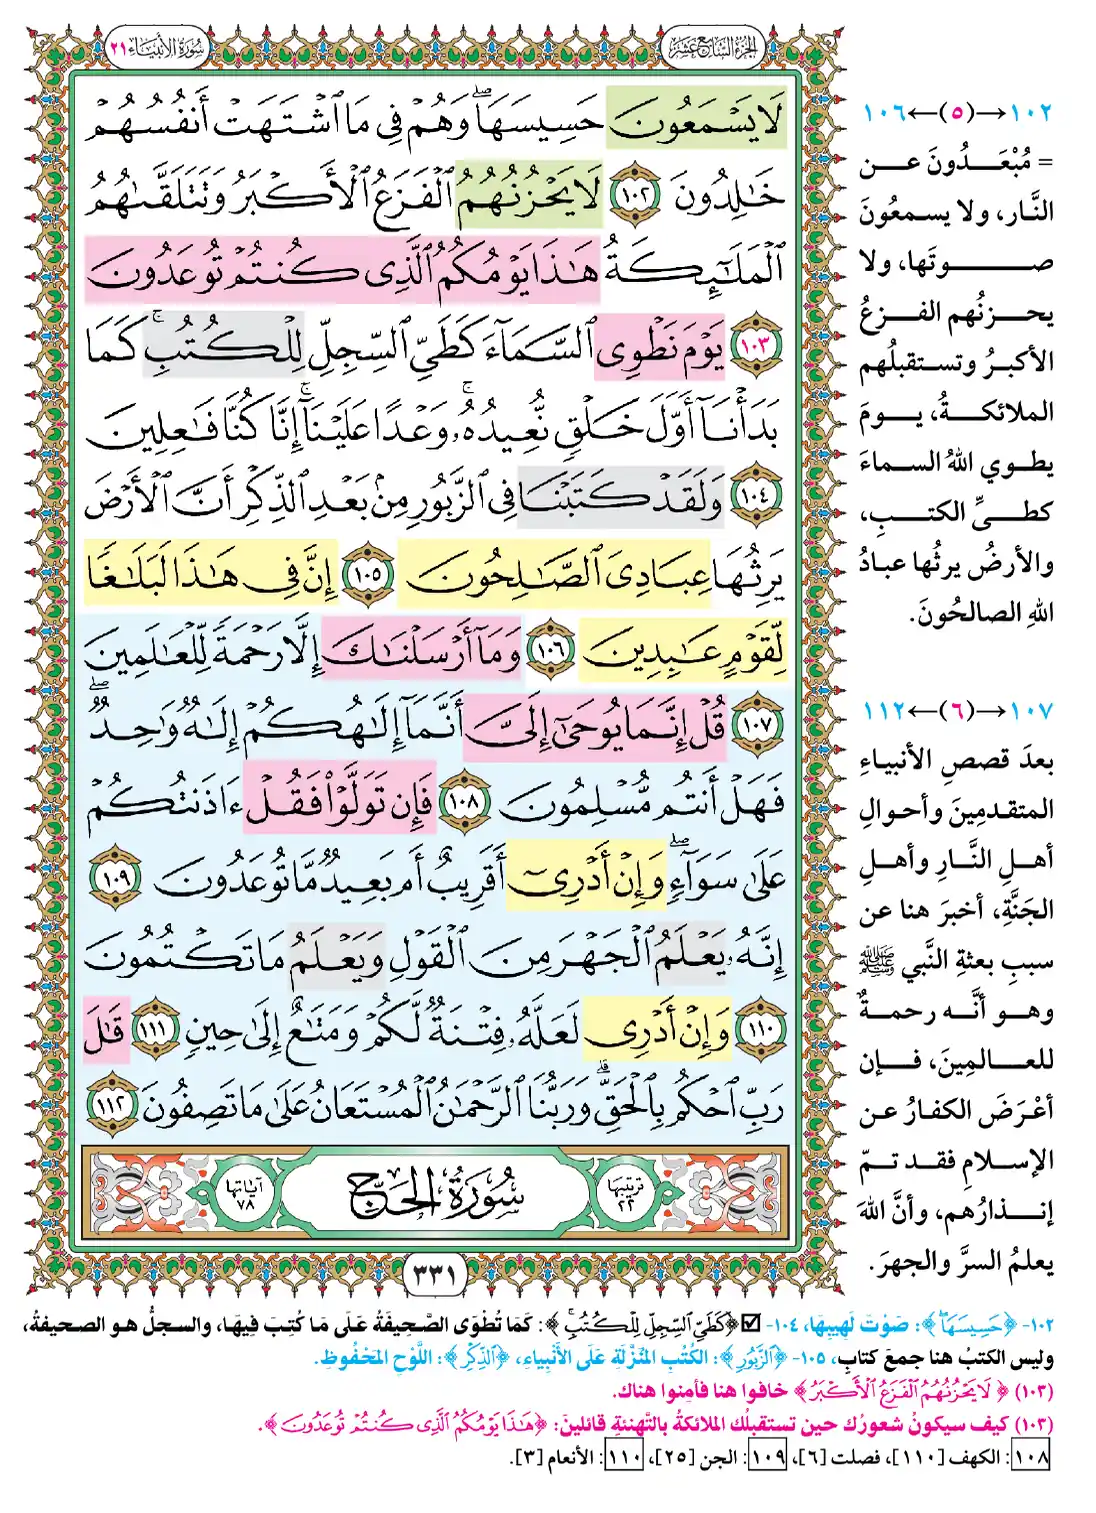 الجزء السابع عشر
سورة الأنبياء ٢١
لَا يَسْمَعُونَ حَسِيسَهَا ۖ وَهُمْ فِي مَا ٱشْتَهَتْ أَنفُسُهُمْ
خَٰلِدُونَ ١٠٢ لَا يَحْزُنُهُمُ ٱلْفَزَعُ ٱلْأَكْبَرُ وَتَتَلَقَّىٰهُمُ
ٱلْمَلَٰٓئِكَةُ هَٰذَا يَوْمُكُمُ ٱلَّذِى كُنتُمْ تُوعَدُونَ
١٠٣ يَوْمَ نَطْوِى ٱلسَّمَآءَ كَطَىِّ ٱلسِّجِلِّ لِلْكُتُبِ ۚ كَمَا
بَدَأْنَآ أَوَّلَ خَلْقٍ نُّعِيدُهُۥ ۚ وَعْدًا عَلَيْنَآ ۚ إِنَّا كُنَّا فَٰعِلِينَ
١٠٤ وَلَقَدْ كَتَبْنَا فِى ٱلزَّبُورِ مِنۢ بَعْدِ ٱلذِّكْرِ أَنَّ ٱلْأَرْضَ
يَرِثُهَا عِبَادِىَ ٱلصَّٰلِحُونَ ١٠٥ إِنَّ فِى هَٰذَا لَبَلَٰغًا
لِّقَوْمٍ عَٰبِدِينَ ١٠٦ وَمَآ أَرْسَلْنَٰكَ إِلَّا رَحْمَةً لِّلْعَٰلَمِينَ
١٠٧ قُلْ إِنَّمَا يُوحَىٰٓ إِلَىَّ أَنَّمَآ إِلَٰهُكُمْ إِلَٰهٌ وَٰحِدٌ ۖ
فَهَلْ أَنتُم مُّسْلِمُونَ ١٠٨ فَإِن تَوَلَّوْا۟ فَقُلْ ءَاذَنتُكُمْ
عَلَىٰ سَوَآءٍ ۖ وَإِنْ أَدْرِىٓ أَقَرِيبٌ أَم بَعِيدٌ مَّا تُوعَدُونَ ١٠٩
إِنَّهُۥ يَعْلَمُ ٱلْجَهْرَ مِنَ ٱلْقَوْلِ وَيَعْلَمُ مَا تَكْتُمُونَ
١١٠ وَإِنْ أَدْرِى لَعَلَّهُۥ فِتْنَةٌ لَّكُمْ وَمَتَٰعٌ إِلَىٰ حِينٍ ١١١ قَٰلَ
رَبِّ ٱحْكُم بِٱلْحَقِّ ۗ وَرَبُّنَا ٱلرَّحْمَٰنُ ٱلْمُسْتَعَانُ عَلَىٰ مَا تَصِفُونَ ١١٢
ترتيبها ٢٢
سُورَةُ الحَجِّ
آياتها ٧٨
٣٣١
١٠٢→(٥)←١٠٦
= مُبْعَدُونَ عن
النَّار، ولا يسمعُونَ
صوتَها، ولا
يحزنُهم الفزعُ
الأكبرُ وتستقبلُهم
الملائكةُ، يومَ
يطوي اللهُ السماءَ
كطيِّ الكتبِ،
والأرضُ يرثُها عبادُ
اللهِ الصالحُونَ.
١٠٧→(٦)←١١٢
بعدَ قصصِ الأنبياءِ
المتقدمِينَ وأحوالِ
أهلِ النَّارِ وأهلِ
الجَنَّةِ، أخبرَ هنا عن
سببِ بعثةِ النَّبي ﷺ
وهو أنَّه رحمةٌ
للعالمِينَ، فإن
أعْرَضَ الكفارُ عن
الإسلامِ فقد تمّ
إنذارُهم، وأنَّ اللهَ
يعلمُ السرَّ والجهرَ.
١٠٢- ﴿حَسِيسَهَا ۖ﴾: صَوْتَ لَهِيبِهَا، ١٠٤- ☑ ﴿كَطَيِّ السِّجِلِّ لِلْكُتُبِ ۚ﴾: كَمَا تُطْوَى الصَّحِيفَةُ عَلَى مَا كُتِبَ فِيهَا، والسجلُّ هو الصحيفةُ،
وليس الكتبُ هنا جمعَ كتابٍ، ١٠٥- ﴿الزَّبُورِ﴾: الكُتُبِ المُنَزَّلَةِ عَلَى الأَنْبِيَاءِ، ﴿الذِّكْرِ﴾: اللَّوْحِ المَحْفُوظِ.
(١٠٣) ﴿لَا يَحْزُنُهُمُ ٱلْفَزَعُ ٱلْأَكْبَرُ﴾ خافوا هنا فأمِنوا هناك.
(١٠٣) كيف سيكونُ شعورُك حين تستقبلُك الملائكةُ بالتَّهنئةِ قائلينَ: ﴿هَٰذَا يَوْمُكُمُ ٱلَّذِى كُنتُمْ تُوعَدُونَ﴾.
١٠٨: الكهف [١١٠]، فصلت [٦]، ١٠٩: الجن [٢٥]، ١١٠: الأنعام [٣].